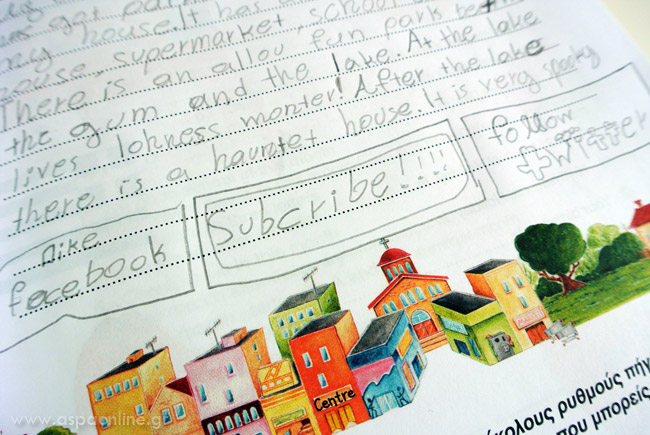 as got
my house. It has
house, supermarket, school
There is an allou fun park
the gum and the lake. At the lake
lives lohness monter! After the lake
there is a hauntet house It is very spooky
like
facebook
Subcribe!!!!
follow
twitter
Centre
κολους ρυθμούς πήγ
που μπορείς
www.aspaonline.gr